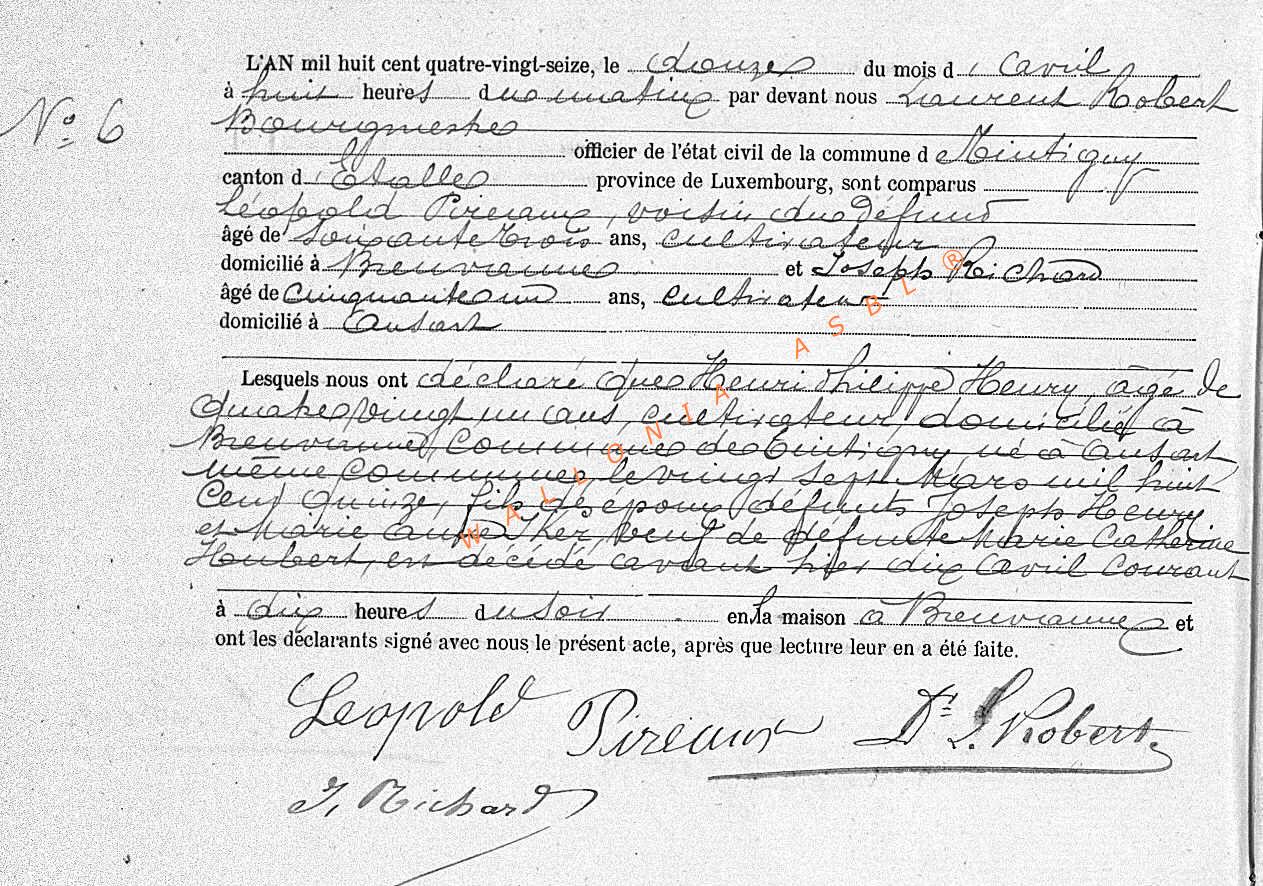 L'AN mil huit cent quatre-vingt-seize, le douze du mois d' avril
N° 6
à huit heures du matin par devant nous Laurent Robert
Bourgmestre
officier de l'état civil de la commune d Tintigny
canton d' Etalle province de Luxembourg, sont comparus
Léopold Pireaux, voisin du défunt
âgé de soixante trois ans, cultivateur
domicilié à Breuvanne et Joseph Richard
âgé de cinquante un ans, cultivateur
domicilié à Ansart
Lesquels nous ont déclaré que Henri Philippe Henry, âgé de
quatre vingt un ans, cultivateur, domicilié à
Breuvanne, commune de Tintigny, né à Ansart,
même commune, le vingt sept Mars mil huit
cent quinze, fils des époux défunts Joseph Henry
et Marie Anne Ther, veuf de défunte Marie Catherine
Houbert, est décédé avant hier dix avril courant
à dix heures du soir en la maison à Breuvanne et
ont les déclarants signé avec nous le présent acte, après que lecture leur en a été faite.
Léopold Pireaux Dr L. Robert.
J. Richard
WALLONIA ASBL ®